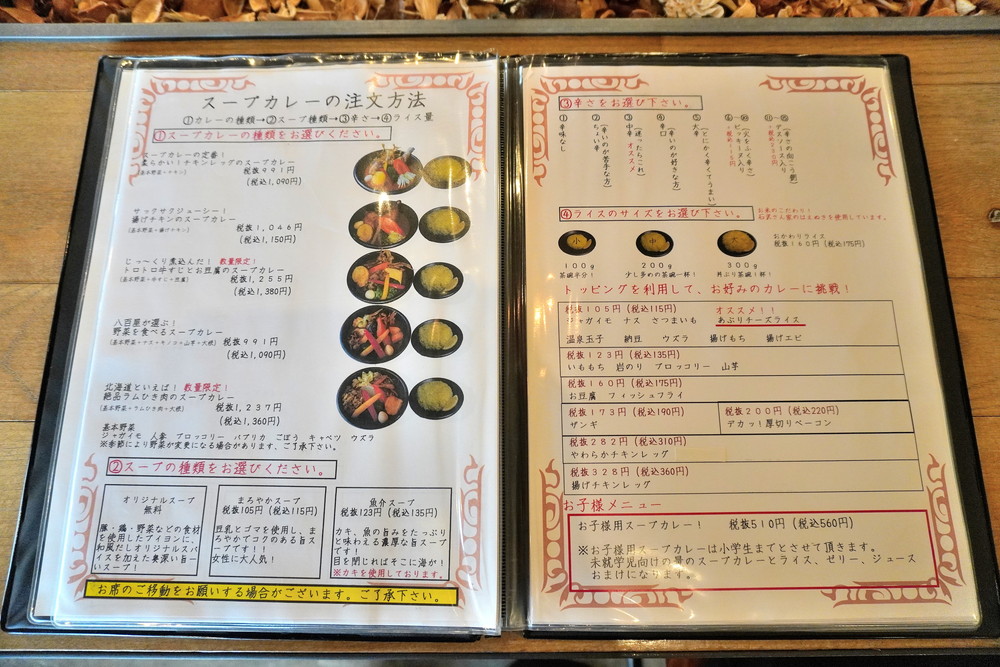 スープカレーの注文方法
①カレーの種類→②スープ種類→③辛さ→④ライス量
①スープカレーの種類をお選びください。
スープカレーの定番!
柔らかい!チキンレッグのスープカレー
(基本野菜+チキン)
税抜991円
(税込1,090円)
サックサクジューシー!
揚げチキンのスープカレー
(基本野菜+揚げチキン)
税抜1,046円
(税込1,150円)
じっくり煮込んだ! 数量限定!
トロトロ牛すじとお豆腐のスープカレー
(基本野菜+牛すじ+豆腐)
税抜1,255円
(税込1,380円)
八百屋が選ぶ!
野菜を食べるスープカレー
(基本野菜+ナス+キノコ+山芋+大根)
税抜991円
(税込1,090円)
北海道といえば! 数量限定!
絶品ラムひき肉のスープカレー
(基本野菜+ラムひき肉+大根)
税抜1,237円
(税込1,360円)
基本野菜
ジャガイモ 人参 ブロッコリー パプリカ ごぼう キャベツ ウズラ
※季節により野菜が変更になる場合があります、ご了承下さい。
②スープの種類をお選びください。
オリジナルスープ
無料
豚・鶏・野菜などの食材
を使用したブイヨンに、
和風だしオリジナルスパ
イスを加えた奥深い旨ー
いスープ!
まろやかスープ
税抜105円(税込115円)
豆乳とゴマを使用し、ま
ろやかでコクのある旨ス
ープです!!
女性に大人気!
魚介スープ
税抜123円(税込135円)
カキ、魚の旨みをたっぷり
と味わえる濃厚な旨スープ
です!
目を閉じればそこに海が!
※カキを使用しております。
お席のご移動をお願いする場合がございます。ご了承下さい。
③辛さをお選び下さい。
① 辛味なし
② ちょい辛 (辛いのが苦手な方)
③ 中辛 オススメ (迷ったらこれ)
④ 辛口 (辛いのが好きな方)
⑤ 大辛 (とにかく辛くてうまい)
④ライスのサイズをお選び下さい。
お米のこだわり!
石沢さん家のはえぬきを使用しています。
小
中
大
おかわりライス
税抜160円(税込175円)
100g
茶碗半分!
200g
少し多めの茶碗一杯!
300g
丼ぶり茶碗1杯!
トッピングを利用して、お好みのカレーに挑戦!
税抜105円(税込115円) オススメ!!
ジャガイモ ナス さつまいも あぶりチーズライス
温泉玉子 納豆 ウズラ 揚げもち 揚げエビ
税抜123円(税込135円)
いももち 岩のり ブロッコリー 山芋
税抜160円(税込175円)
お豆腐 フィッシュフライ
税抜173円(税込190円)
ザンギ
税抜200円(税込220円)
デカッ!厚切りベーコン
税抜282円(税込310円)
やわらかチキンレッグ
税抜328円(税込360円)
揚げチキンレッグ
お子様メニュー
お子様用スープカレー! 税抜510円(税込560円)
※お子様用スープカレーは小学生までとさせて頂きます。
未就学児向けの量のスープカレーとライス、ゼリー、ジュース
おまけになります。